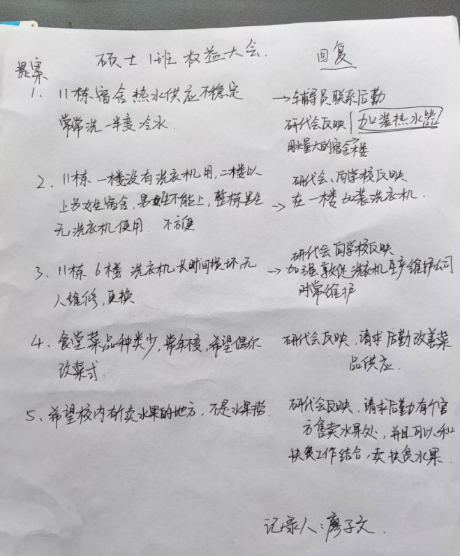 硕士1班权益大会.
提案
回复
1. 11栋宿舍热水供应不稳定
常常洗一半变冷水.
→辅导员联系后勤
研代会反映 加装热水器
用水量大的宿舍楼
2. 11栋一楼没有洗衣机用,二楼以
上为女生宿舍,男生不能上,整栋男生
无洗衣机使用 不方便
研代会、向学校反映
→在一楼加装洗衣机.
3、11栋6楼 洗衣机长时间损坏,无
人维修,更换
研代会向学校反映
→加强敦促洗衣机生产维护公司
时常维护
4、食堂菜品种类少,常年不变,希望偶尔
改菜式.
研代会反映、请求后勤改善菜
品供应.
5、希望校内有卖水果的地方,不是水果捞.
研代会反映、请求后勤有个官
方售卖水果处,并且可以和
扶贫工作结合,卖扶贫水果.
记录人:廖子文.